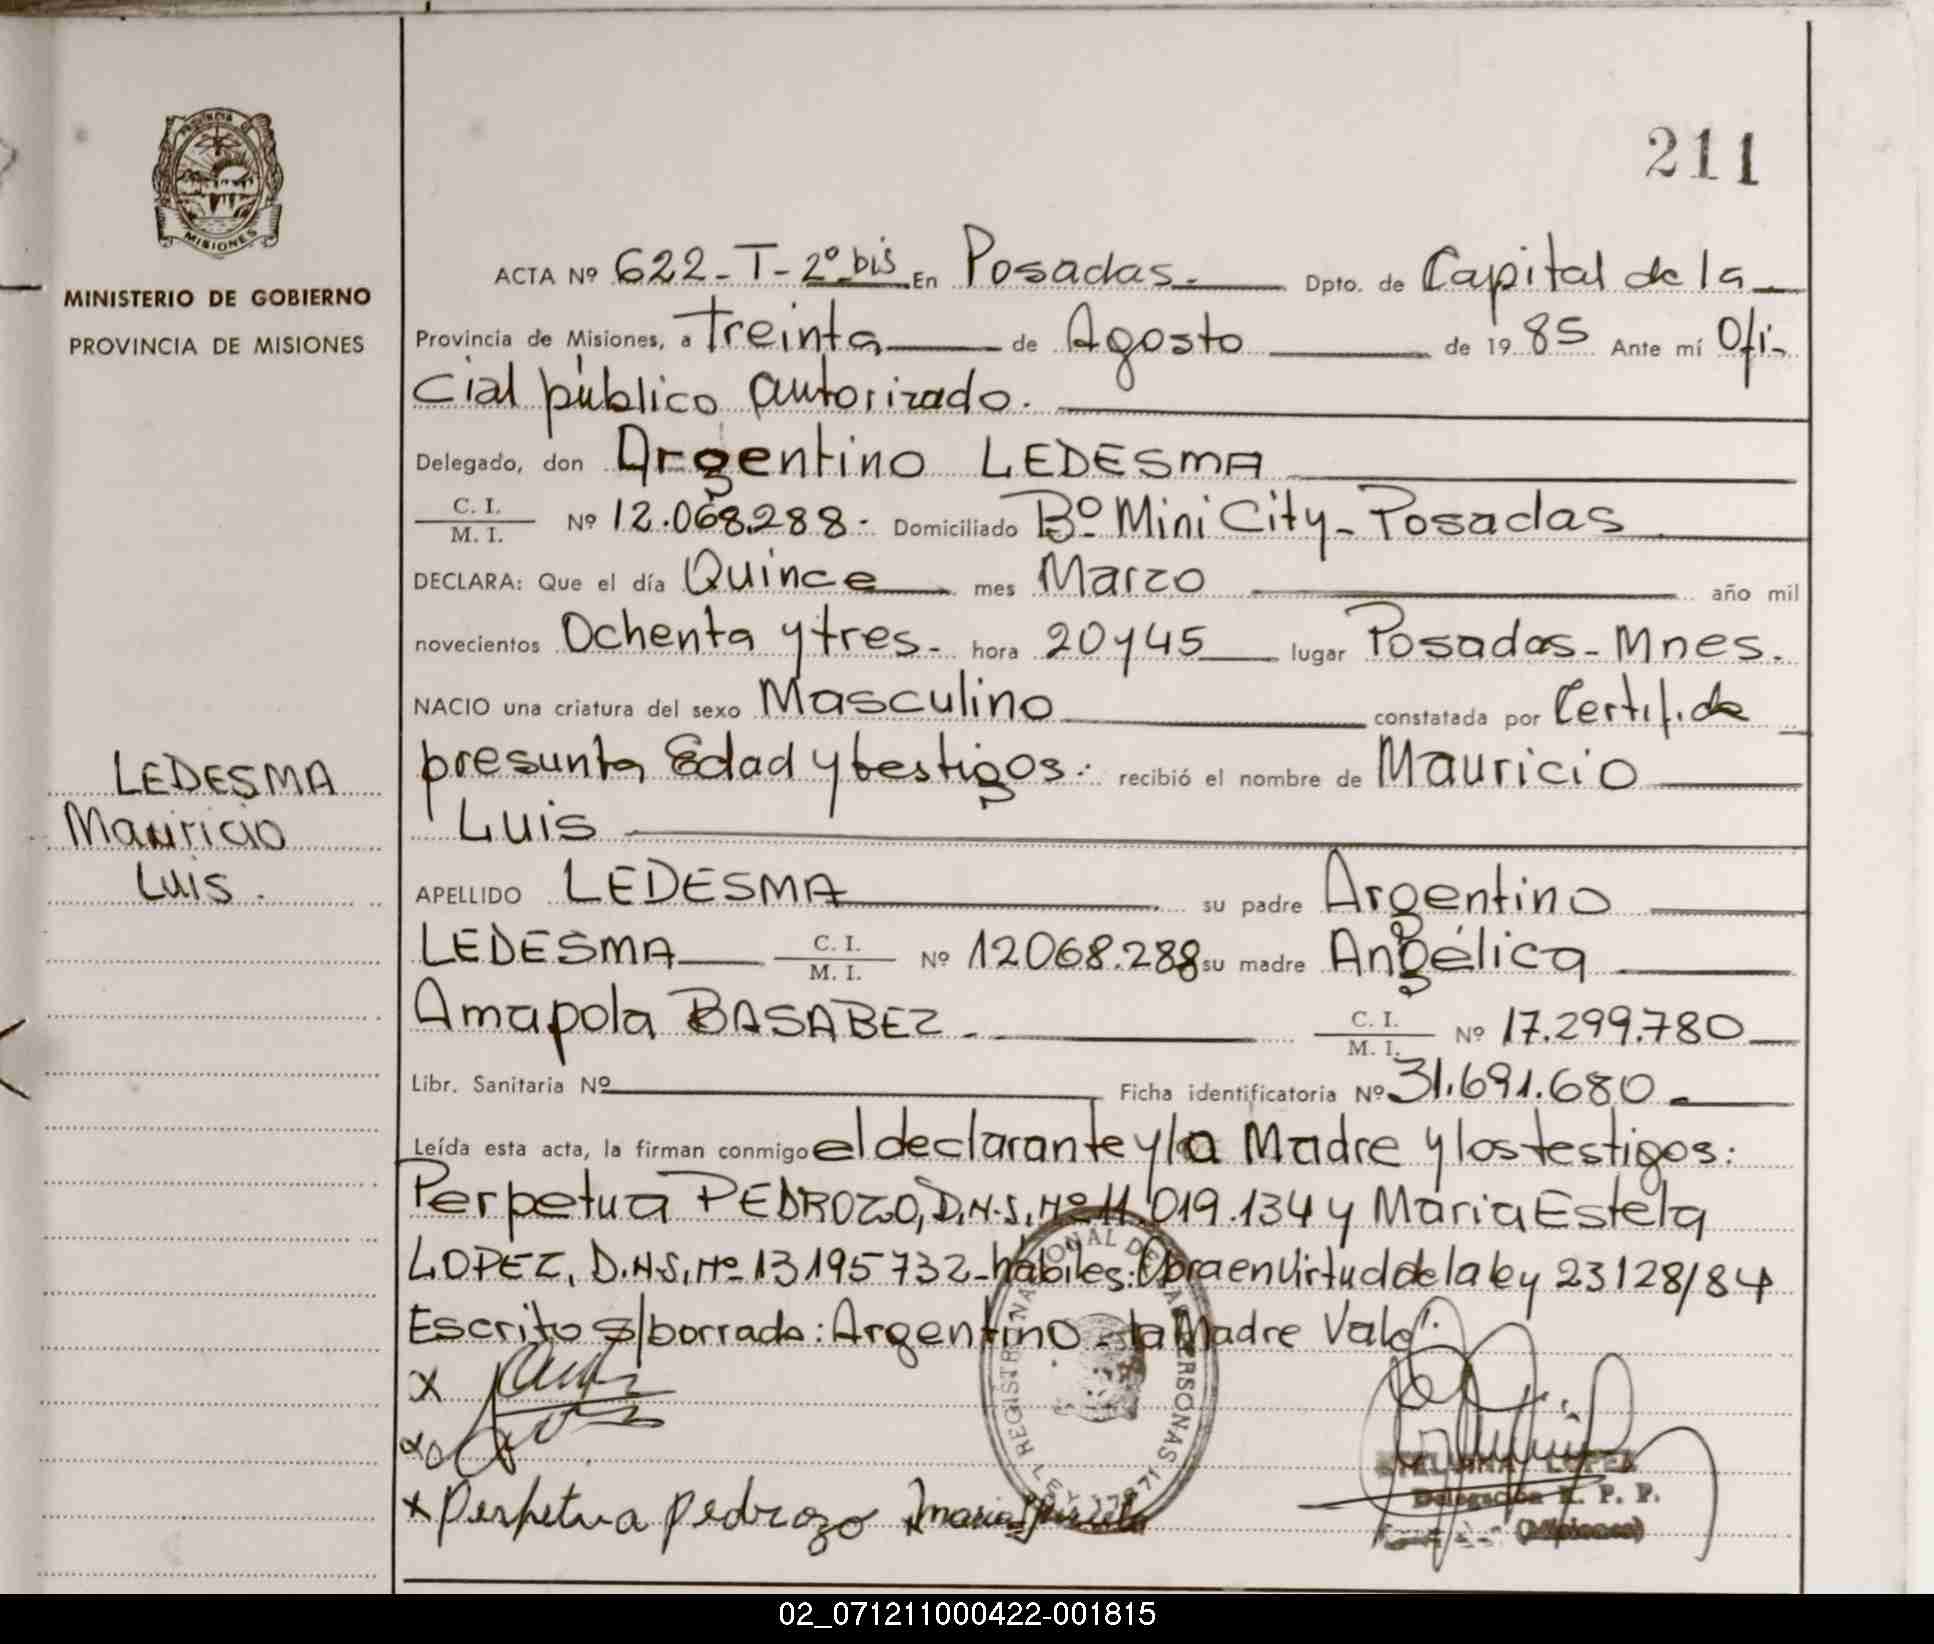 211
PROVINCIA D
MISIONES
MINISTERIO DE GOBIERNO
PROVINCIA DE MISIONES
LEDESMA
Mauricio
Luis.
ACTA Nº 622-T-2º bis En Posadas. Dpto. de Capital de la
Provincia de Misiones, a Treinta de Agosto de 1985 Ante mí Ofi-
cial público autorizado.
Delegado, don Argentino LEDESMA
C. I. / M. I. Nº 12.068.288.- Domiciliado Bº Mini City - Posadas
DECLARA: Que el día Quince mes Marzo año mil
novecientos Ochenta y tres. hora 20 y 45 lugar Posadas - Mnes.
NACIO una criatura del sexo Masculino constatada por Certif. de
presunta Edad y testigos: recibió el nombre de Mauricio
Luis
APELLIDO LEDESMA su padre Argentino
LEDESMA C. I. / M. I. Nº 12068.288 su madre Angélica
Amapola BASABEZ. C. I. / M. I. Nº 17.299.780
Libr. Sanitaria Nº Ficha identificatoria Nº 31.691.680
Leída esta acta, la firman conmigo el declarante y la Madre y los testigos:
Perpetua PEDROZO, D.N.I. Nº 11.019.134 y Maria Estela
LOPEZ, D.N.I. Nº 13195732 - hábiles: Obra en virtud de la ley 23128/84
Escrito s/borrado: Argentino - la Madre Vale:
REGISTRO NACIONAL DE LAS PERSONAS
LEY 17671
x
x
x Perpetua Pedrozo x Maria
LOPEZ
Delegación R. P. P.
(Misiones)
02_071211000422-001815